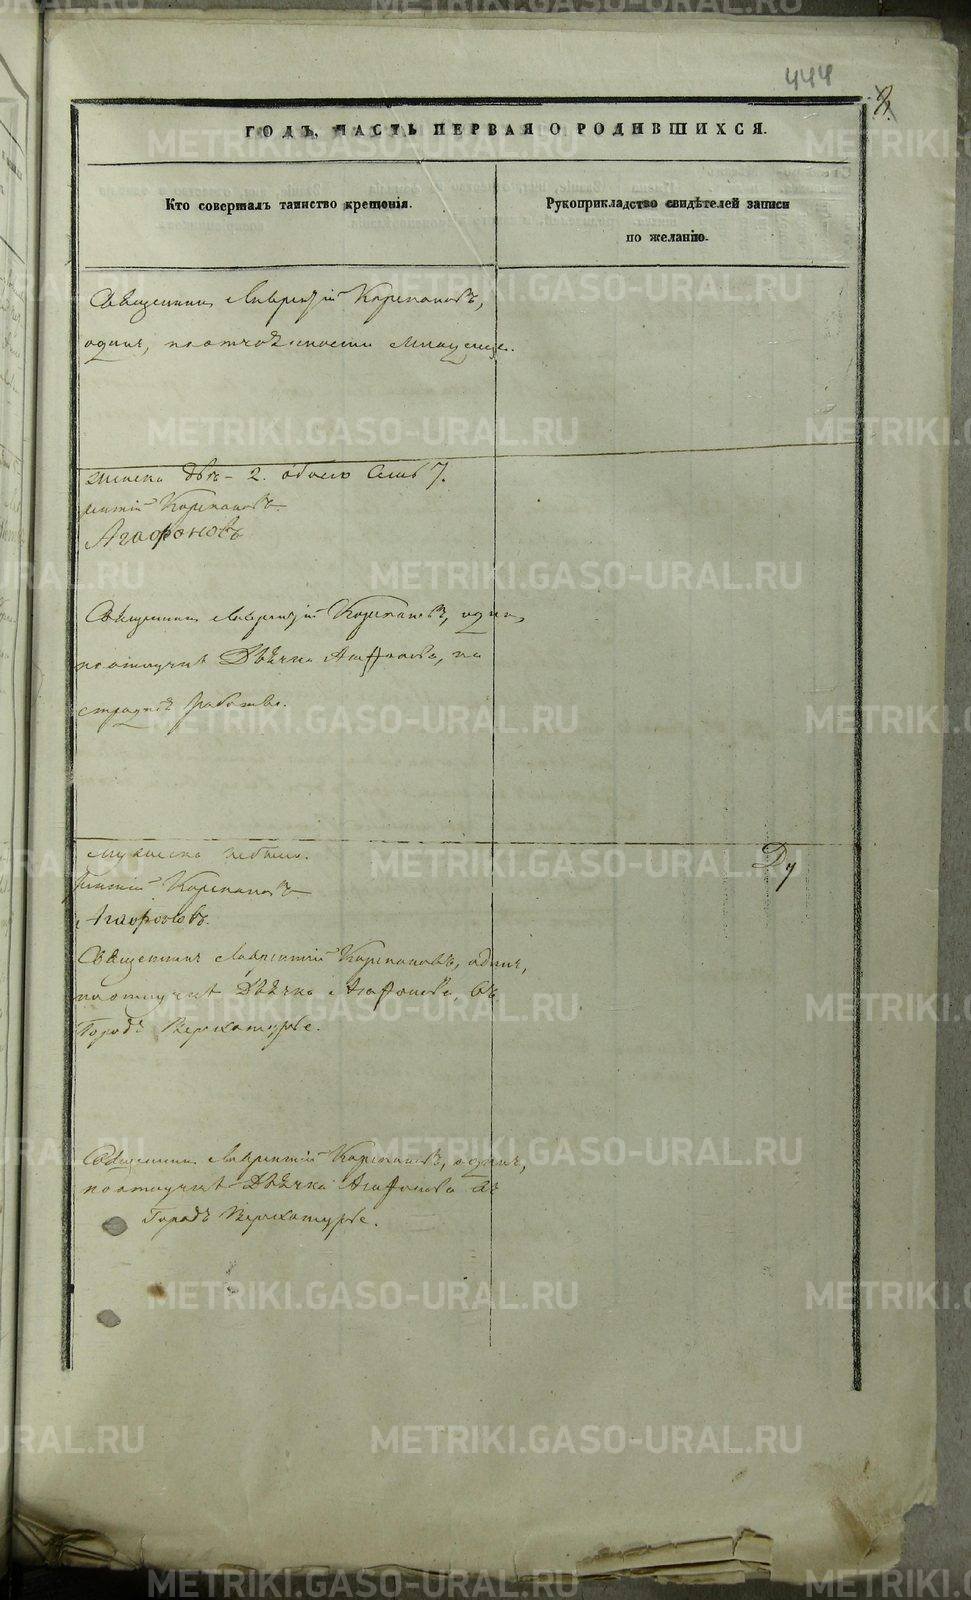 444
8.
ГОДЪ, ЧАСТЬ ПЕРВАЯ О РОДИВШИХСЯ.
Кто совершалъ таинство крещенія.
Рукоприкладство свидѣтелей записи
по желанію.
Священникъ Лаврентій Корепановъ,
одинъ,
женска двѣ - 2. обоего семь 7.
рентій Корепановъ
Агафоновъ
Священникъ Лаврентій Корепановъ, одинъ,
по отлучкѣ Дьячка Агафонова, на
страдныя работы.
мужеска небыло.
рентій Корепановъ
Агафоновъ.
Ду
Священникъ Лаврентій Корепановъ, одинъ,
по отлучкѣ Дьячка Агафонова, въ
Городъ Верхотурье.
Священникъ Лаврентій Корепановъ, одинъ,
по отлучкѣ Дьячка Агафонова въ
Городъ Верхотурье.
METRIKI.GASO-URAL.RU